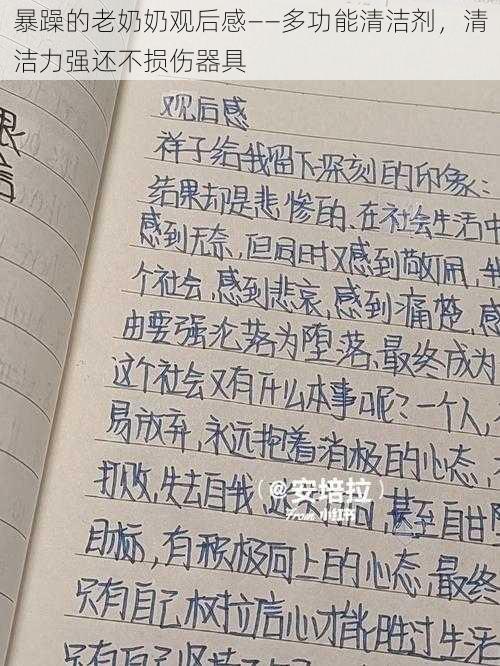 暴躁的老奶奶观后感——多功能清洁剂，清
洁力强还不损伤器具
观后感
祥子给我留下深刻的印象：
结果却是悲惨的、在社会生活中
感到无奈，但同时又感到敬佩，
个社会，感到悲哀，感到痛楚，感
由要强沦落为堕落、最终成为
这个社会又有什么本事呢？一个人，
易放弃，永远抱着消极的心态，
打败，失去自我，甚至自甘堕
目标，有积极向上的心态，最终
只有自己树拉信心才能胜过生活
只有自己坚持
@安培拉
From 小红书